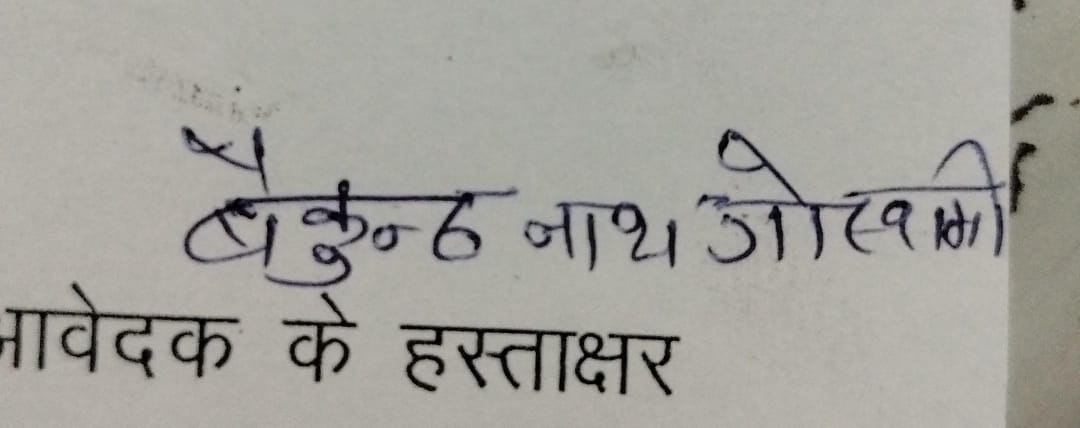 बैकुन्ठ नाथ गोस्वामी
आवेदक के हस्ताक्षर